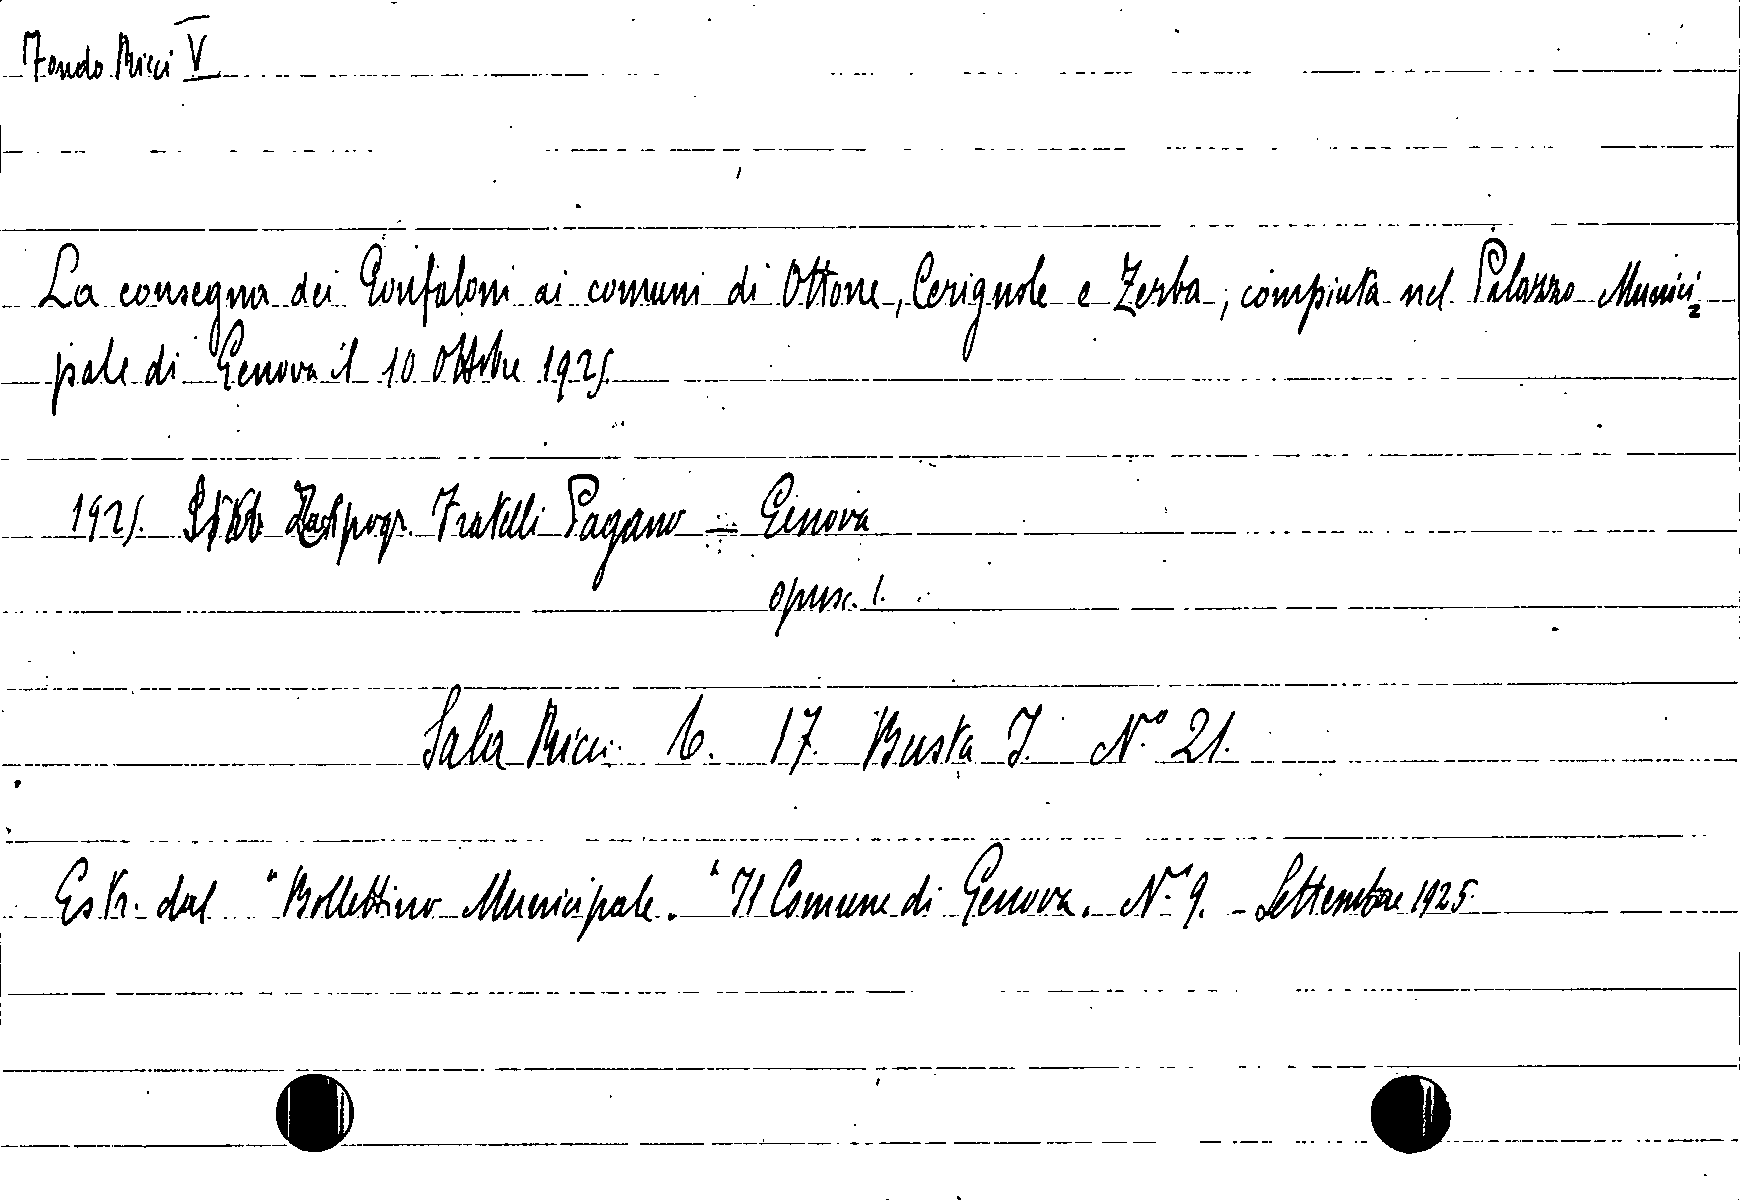 Fondo Ricci V
La consegna dei Gonfaloni ai comuni di Ottone, Cerignole e Zerba, compiuta nel Palazzo Munici=
pale di Genova il 10 Ottobre 1925.
1925. Fratelli Pagano - Genova
opusc. 1.
Sala Ricci. 17. Busta I. N.° 21.
Estr. dal "Bollettino Municipale." Il Comune di Genova. N.° 9. - Settembre 1925.